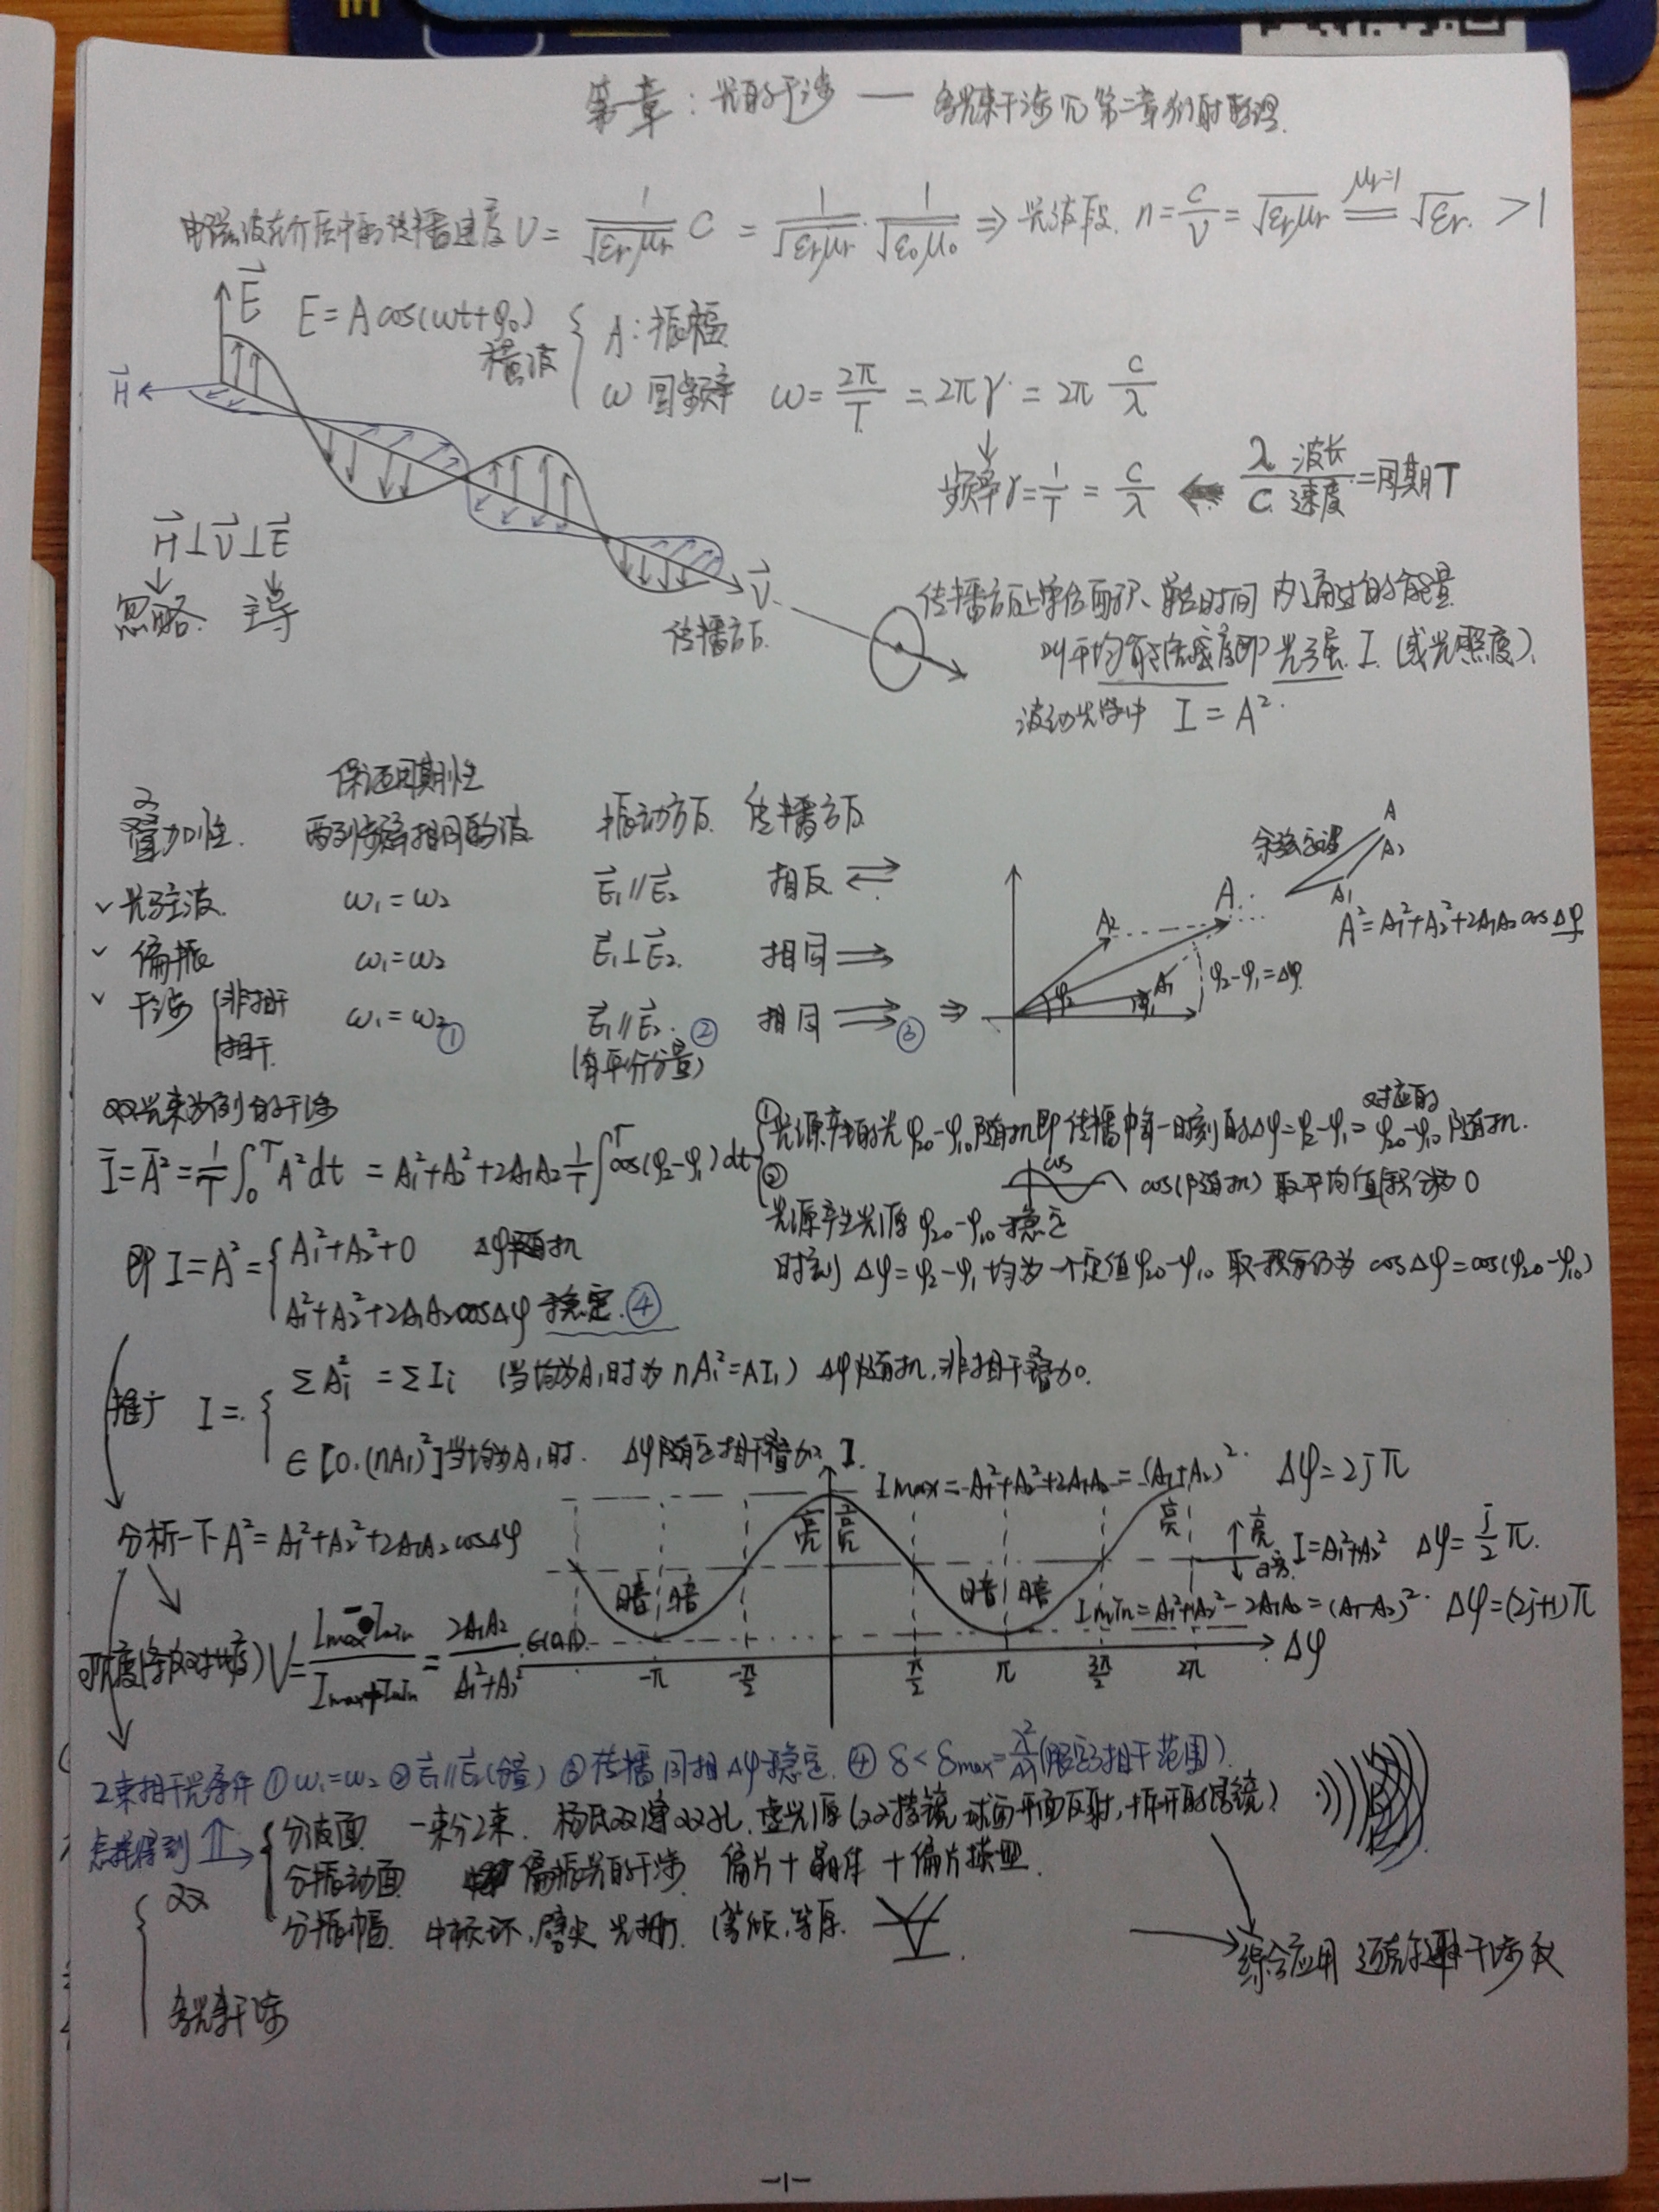 第一章：光的干涉 — 多光束干涉见第二章衍射整理.
电磁波在介质中的传播速度 V = 1/√(εrμr) C = 1/√(εrμr) · 1/√(ε0μ0) ⇒ 光波段. n = C/V = √(εrμr) =(μr=1)= √εr. > 1
E⃗ E = A cos(ωt+φ0) 横波 { A：振幅
H⃗ ω 圆频率 ω = 2π/T = 2πγ = 2π C/λ
频率γ = 1/T = C/λ ⇐ λ 波长/C 速度 = 周期T
H⃗⊥V⃗⊥E⃗
↓忽略. ↓主导
V⃗ 传播方向.
传播方向上单位面积、单位时间内通过的能量
叫平均能流密度即光强. I (或光照度).
波动光学中 I = A².
叠加性. 保证周期性 两列频率相同的波 振动方向. 传播方向
✓ 光驻波. ω1=ω2 E⃗1//E⃗2 相反 ⇄
✓ 偏振 ω1=ω2 E⃗1⊥E⃗2. 相同 ⇒
✓ 干涉 {非相干 相干. ω1=ω2 ① E⃗1//E⃗2. ② (有平行分量) 相同 ⇒ ③ ⇒
余弦定理 A A2 A1
A²=A1²+A2²+2A1A2 cosΔφ
A2 A A1 φ2 φ1 φ2-φ1=Δφ
双光束为例的干涉
Ī = Ā² = 1/T ∫0^T A² dt = A1²+A2²+2A1A2 1/T ∫^T cos(φ2-φ1) dt
{① 光源产生的光 φ20-φ10 随机即传播中每一时刻的Δφ=φ2-φ1=对应的φ20-φ10 随机.
cos cos(随机) 取平均值积分为 0
② 光源产生光源 φ20-φ10 稳定
时刻 Δφ=φ2-φ1 均为一个定值φ20-φ10 取积分仍为 cosΔφ=cos(φ20-φ10)
即 I=A²= { A1²+A2²+0 Δφ随机
A1²+A2²+2A1A2cosΔφ 稳定. ④
推广 I = { ΣAi² = ΣIi (当均为A1时为 nA1²=AI1) Δφ随机.非相干叠加.
∈ [0.(nA1)²]当均为A1时. Δφ随定相干叠加
分析一下 A²=A1²+A2²+2A1A2 cosΔφ
I Imax=A1²+A2²+2A1A2=(A1+A2)². Δφ=2jπ
亮 亮 亮 亮 暗 I=A1²+A2² Δφ=j/2 π.
暗 暗 暗 暗 Imin=A1²+A2²-2A1A2=(A1-A2)². Δφ=(2j+1)π
可见度(条纹对比度) V = (Imax-Imin)/(Imax+Imin) = 2A1A2/(A1²+A2²) ∈(0,1).
-π -π/2 π/2 π 3π/2 2π Δφ
2束相干光条件 ①ω1=ω2 ②E⃗1//E⃗2(分量) ③传播同相Δφ稳定. ④ δ<δmax=λ²/Δλ(限定了相干范围).
怎样得到 ⇑→ { 分波面. 一束分2束. 杨氏双缝双孔. 虚光源 (双棱镜, 球面平面反射, 拆开的透镜)
分振动面 偏振光的干涉. 偏片+晶体+偏片模型.
分振幅. 牛顿环, 劈尖 光栅. (等倾, 等厚.
{ 双
多光束干涉
综合应用 迈克尔逊干涉仪
-1-